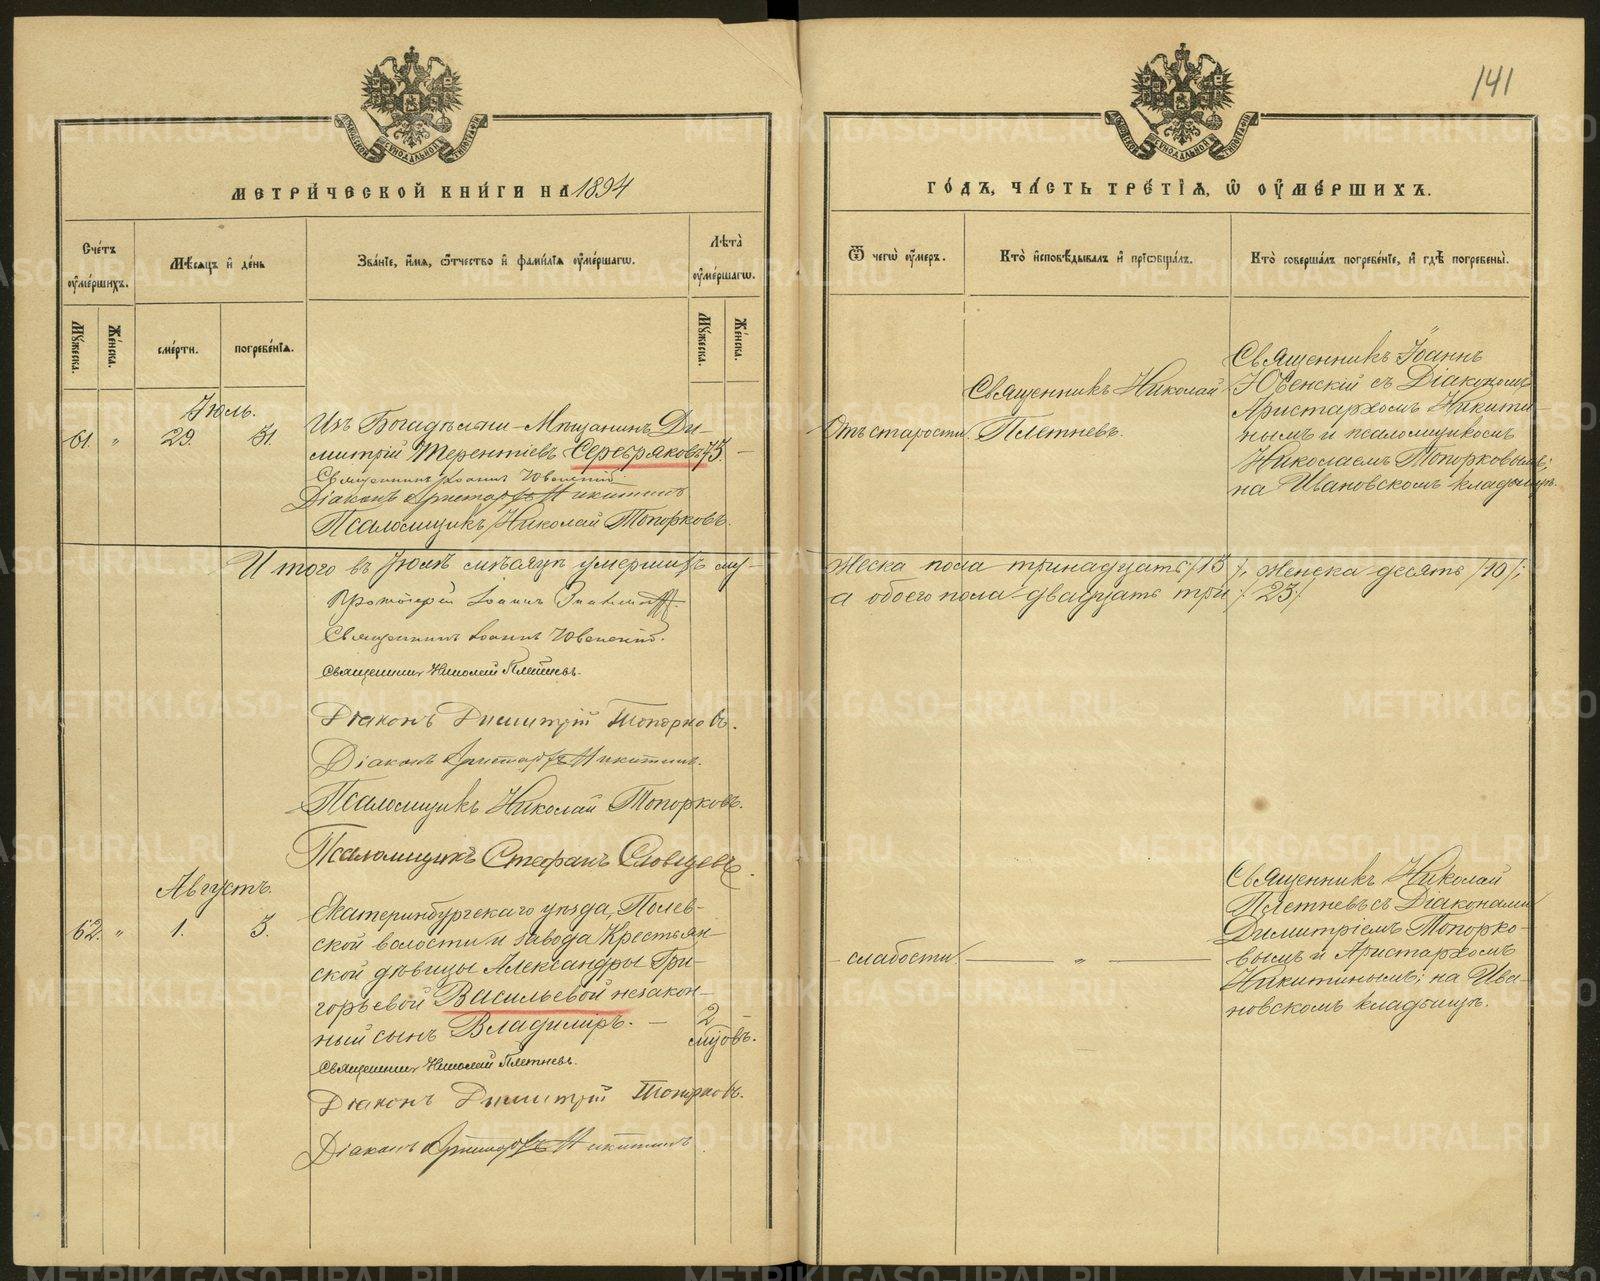 141
МЕТРИЧЕСКОЙ КНИГИ НА 1894
ГОДЪ, ЧАСТЬ ТРЕТІЯ, Ѿ ОУМЕРШИХЪ.
Счетъ оумершихъ.
Мѣсяцъ и день
Званіе, имя, ѿчество и фамилія оумершагѡ.
Лѣта оумершагѡ.
Мужеска.
Женска.
смерти.
погребенія.
Мужеска.
Женска.
Ѿ чегѡ оумеръ.
Кто исповѣдывалъ и пріѡбщалъ.
Кто совершалъ погребеніе, и гдѣ погребены.
Іюль.
61. " 29. 31.
Изъ Богадѣльни - Мѣщанинъ Ди-
митрій Терентіевъ Серебряковъ 75. -
Священникъ Іоаннъ Ювенскій
Діаконъ Аристархъ Никитинъ
Псаломщикъ Николай Топорковъ.
Отъ старости.
Священникъ Николай
Плетневъ.
Священникъ Іоаннъ
Ювенскій съ Діакономъ
Аристархомъ Никити-
нымъ и псаломщикомъ
Николаемъ Топорковымъ;
на Ивановскомъ кладбищѣ.
Итого въ Іюлѣ мѣсяцѣ умершихъ му-
жеска пола тринадцать /13/, женска десять /10/;
а обоего пола двадцать три /23/
Протоіерей Іоаннъ
Священникъ Іоаннъ Ювенскій.
Священникъ Николай Плетневъ.
Діаконъ Димитрій Топорковъ.
Діаконъ Аристархъ Никитинъ.
Псаломщикъ Николай Топорковъ.
Псаломщикъ Стефанъ Словцевъ.
Августъ.
62. " 1. 3.
Екатеринбургскаго уѣзда, Полев-
ской волости и завода Крестьян-
ской дѣвицы Александры Гри-
горьевой Васильевой незакон-
ный сынъ Владиміръ. - 2
мѣсцовъ.
Священникъ Николай Плетневъ.
Діаконъ Димитрій Топорковъ.
Діаконъ Аристархъ Никитинъ
слабости.
"
Священникъ Николай
Плетневъ съ Діаконами
Димитріемъ Топорко-
вымъ и Аристархомъ
Никитинымъ; на Ива-
новскомъ кладбищѣ.
METRIKI.GASO-URAL.RU